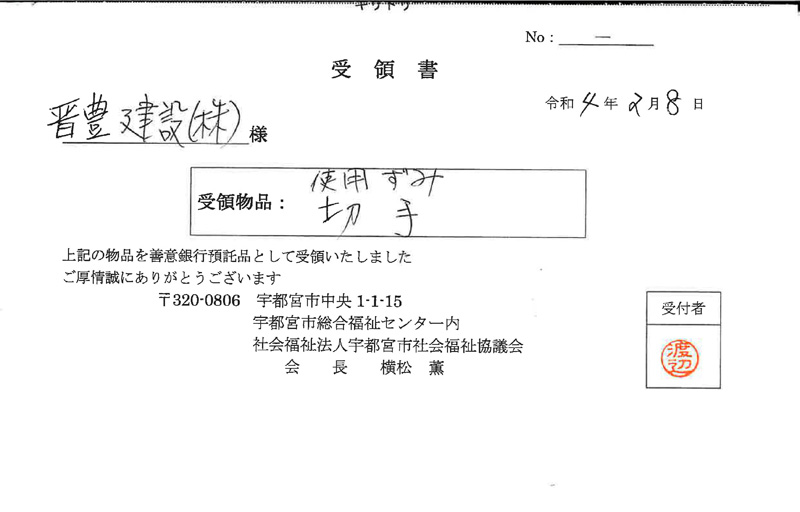 キリトリ
No: 一
受領書
令和 4 年 2 月 8 日
晋豊建設(株) 様
使用ずみ
受領物品: 切手
上記の物品を善意銀行預託品として受領いたしました
ご厚情誠にありがとうございます
〒320-0806 宇都宮市中央 1-1-15
宇都宮市総合福祉センター内
社会福祉法人宇都宮市社会福祉協議会
会 長 横松 薫
受付者
渡辺